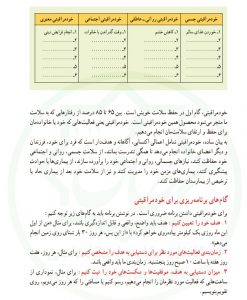 خودمراقبتی جسمی
خودمراقبتی روانی-عاطفی
خودمراقبتی اجتماعی
خودمراقبتی معنوی
۱. خوردن غذای سالم
۱. کاهش خشم
۱. وقت گذراندن با خانواده
۱. انجام فرایض دینی
۲.
۲.
۲.
۲.
۳.
۳.
۳.
۳.
۴.
۴.
۴.
۴.
خودمراقبتی، گام اول در حفظ سلامت خویش است. بین ۶۵ تا ۸۵ درصد از رفتارهایی که به سلامت
ما منجر می‌شود محصول همین خودمراقبتی است؛ یعنی فعالیت‌هایی که خود یا خانواده‌مان
برای حفظ و ارتقای سلامت‌مان انجام می‌دهیم.
به بیان ساده، خودمراقبتی شامل اعمالی اکتسابی، آگاهانه و هدف‌دار است که فرد برای خود، فرزندان
و دیگر اعضای خانواده انجام می‌دهد تا همگی تندرست بمانند، از سلامت جسمی، روانی و اجتماعی
خود حفاظت کنند، نیازهای جسمانی، روانی و اجتماعی خود را برآورده سازند، از بیماری‌ها یا حوادث
پیشگیری کنند، بیماری‌های مزمن خود را مدیریت کنند و نیز از سلامت خود بعد از بیماری حاد یا
ترخیص از بیمارستان حفاظت کنند.
گام‌های برنامه‌ریزی برای خودمراقبتی
برای خودمراقبتی داشتن برنامه ضروری است. در نوشتن برنامه باید به گام‌های زیر توجه کنیم:
۱. هدف خود را تعیین کنیم. هدف باید واضح، واقعی و قابل اندازه‌گیری باشد، برای مثال «من از اول
این ماه روزی یک کیلومتر پیاده‌روی خواهم کرد» یا «از این پس، هر روز ۳۰ بار شنای روی زمین انجام
می‌دهم».
۲. زمان‌بندی فعالیت‌های مورد نظر برای دستیابی به هدف را مشخص کنیم. برای مثال، هر روز، هفت
روز هفته یا ساعت ۱۰ صبح روز پنجشنبه. زمان‌بندی ما باید واقعی باشد.
۳. میزان دستیابی به هدف، موفقیت‌ها و شکست‌های خود را ثبت کنیم. برای مثال، نموداری از
ساعت‌هایی که فعالیت مورد نظارمان را انجام می‌دهیم، بکشیم یا مسافتی را که هر روز می‌دویم، روی
تقویم بنویسیم.